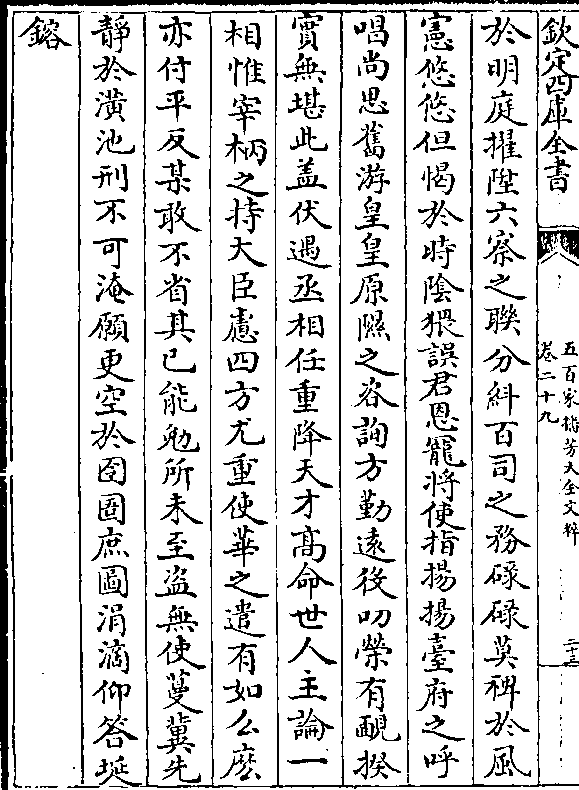 欽定四庫全書
五百家播芳大全文粹
卷二十九
二十三
於明庭擢陞六察之聯分糾百司之務碌碌莫裨於風
憲悠悠但愒於時陰猥誤君恩寵將使指揚揚臺府之呼
唱尚思舊游皇皇原隰之咨詢方勤遠役叨榮有靦揆
實無堪此盖伏遇丞相任重降天才髙命世人主論一
相惟宰柄之持大臣慮四方尤重使華之遣有如么麽
亦付平反某敢不省其已能勉所未至盗無使蔓冀先
靜於潢池刑不可淹願更空於囹圄庶圖涓滴仰答埏
鎔